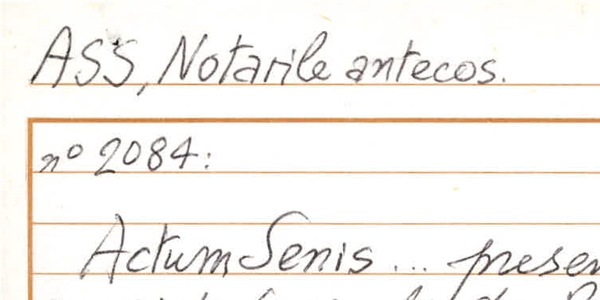 ASS, Notarile antecos.
nº 2084:
Actum Senis ...